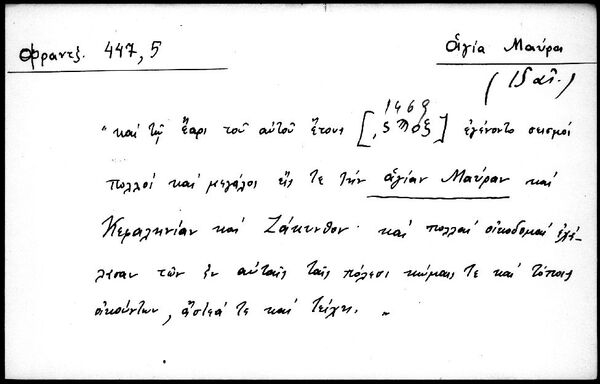 Φραντζ. 447,5
Ἁγία Μαύρα
(15 αἰ.)
1469
"καὶ τῷ ἔαρι τοῦ αὐτοῦ ἔτους [,ϛϡοζ] ἐγένοντο σεισμοὶ
πολλοὶ καὶ μεγάλοι εἴς τε τὴν ἁγίαν Μαύραν καὶ
Κεφαληνίαν καὶ Ζάκυνθον· καὶ πολλαὶ οἰκοδομαὶ
τῶν ἐν αὐταῖς ταῖς πόλεσι κώμαις τε καὶ τόποις
οἰκούντων, ἄστεά τε καὶ τείχη. "